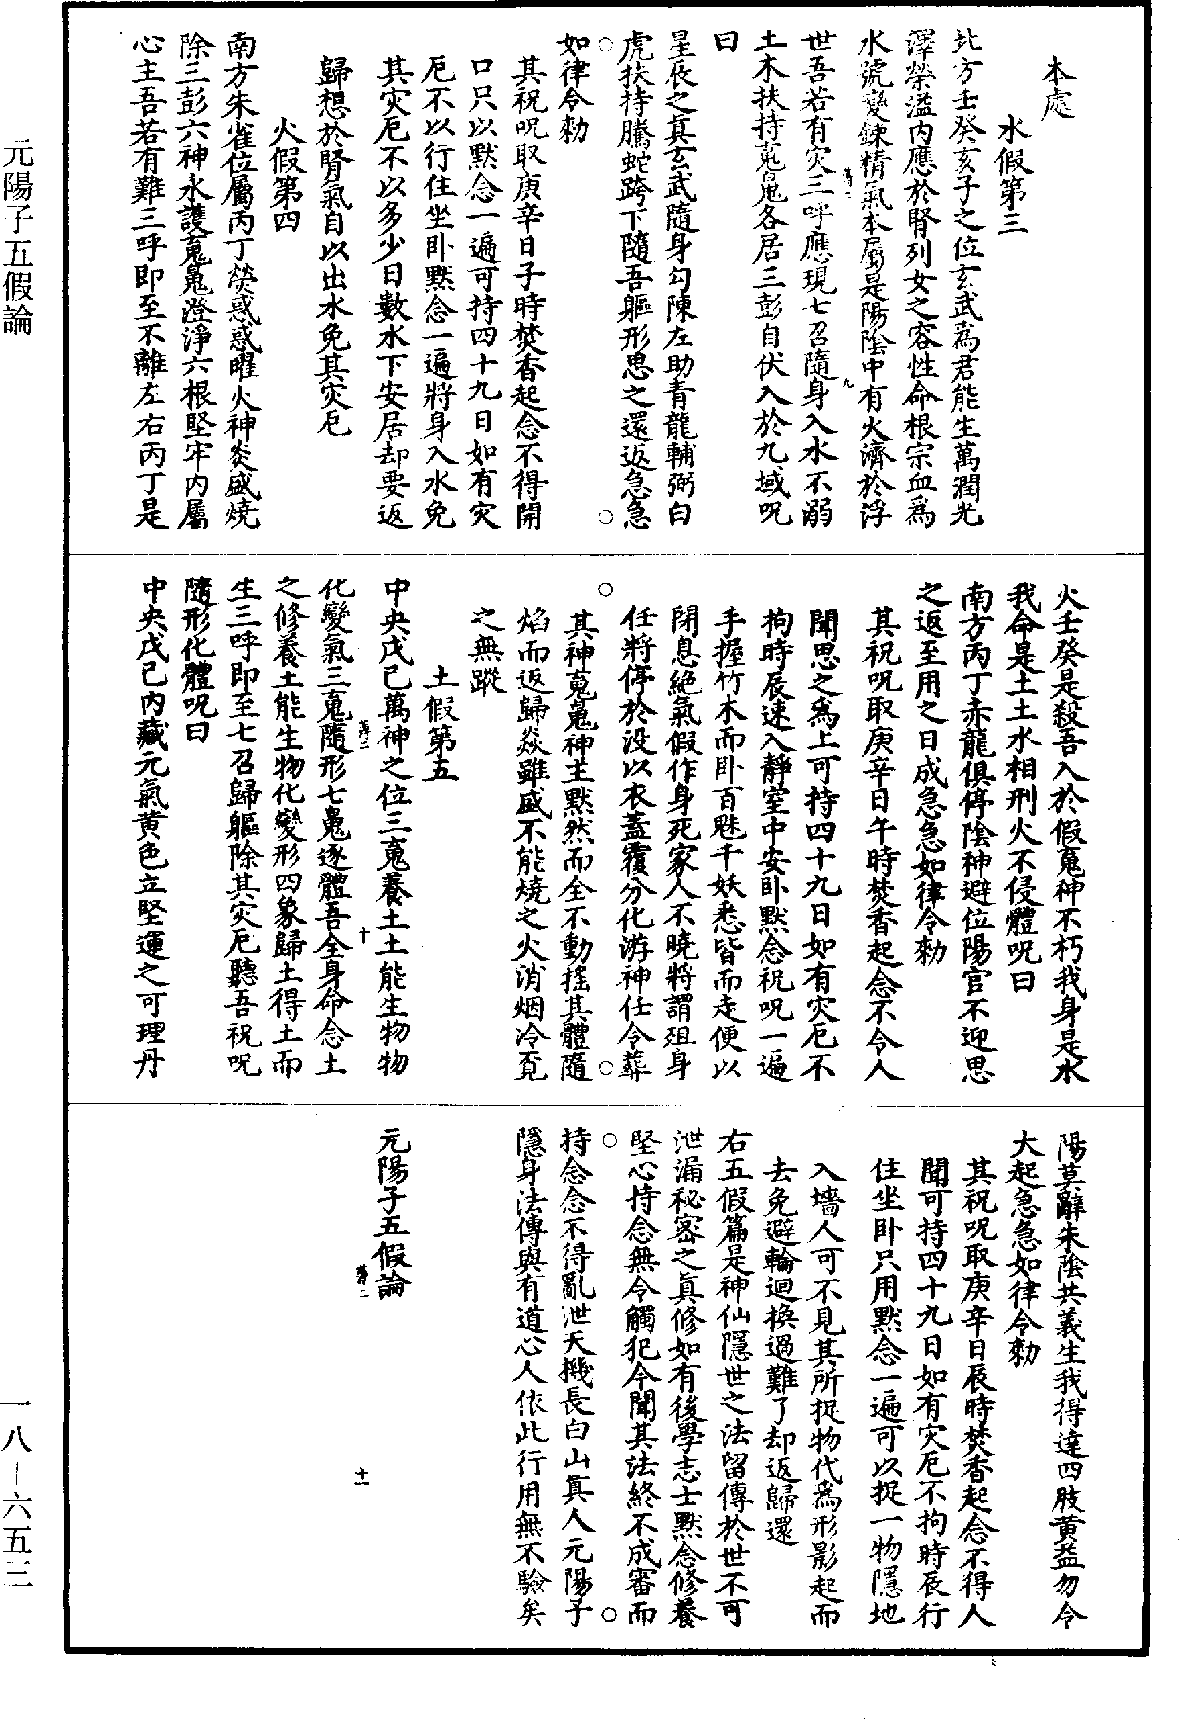 本處
水假第三
北方壬癸亥子之位玄武爲君能生萬潤光
澤榮溢内應於腎列女之容性命根宗血爲
水號變鍊精氣本屬是陽陰中有火濟於浮
世吾若有灾三呼應現七召隨身入水不溺
土木扶持䰟魄各居三彭自伏入於九域呪
曰
星辰之真玄武隨身勾陳左助青龍輔弼白
虎扶持騰蛇跨下隨吾軀形思之還返急急
如律令勑
其祝呪取庚辛日子時焚香起念不得開
口只以默念一遍可持四十九日如有灾
厄不以行住坐卧默念一遍將身入水免
其灾厄不以多少日數水下安居却要返
歸想於腎氣自以出水免其灾厄
火假第四
南方朱雀位屬丙丁熒惑惑曜火神炎盛燒
除三彭六神永護䰟魄澄淨六根堅牢内屬
心主吾若有難三呼即至不離左右丙丁是
火壬癸是殺吾入於假䰟神不朽我身是水
我命是土土水相刑火不侵體呪曰
南方丙丁赤龍俱停陰神避位陽官不迎思
之返至用之日成急急如律令勑
其祝呪取庚辛日午時焚香起念不令人
聞思之爲上可持四十九日如有灾厄不
拘時辰速入靜室中安卧默念祝呪一遍
手握竹木而卧百魅千妖悉皆而走便以
閉息絶氣假作身死家人不曉將謂殂身
任將停於没以衣蓋覆分化游神任令葬
其神䰟魄神主默然而全不動摇其體隨
焰而返歸焱雖盛不能燒之火消烟冷覓
之無蹤
土假第五
中央戊己萬神之位三䰟養土土能生物物
化變氣三䰟隨形七魄逐體吾全身命念土
之修養土能生物化變形四象歸土得土而
生三呼即至七召歸軀除其灾厄聽吾祝呪
隨形化體呪曰
中央戊己内藏元氣黄色立堅運之可理丹
陽莫辭朱陰共義生我得達四肢黄益勿令
大起急急如律令勑
其祝呪取庚辛日辰時焚香起念不得人
聞可持四十九日如有灾厄不拘時辰行
住坐卧只用默念一遍可以捉一物隱地
入墻人可不見其所捉物代爲形影起而
去免避輪迴換過難了却返歸還
右五假篇是神仙隱世之法留傳於世不可
泄漏秘密之真修如有後學志士默念修養
堅心持念無令觸犯今聞其法終不成審而
持念念不得亂泄天機長白山真人元陽子
隱身法傳與有道心人依此行用無不驗矣
元陽子五假論
元陽子五假論
一八—六五三
九
十
十一